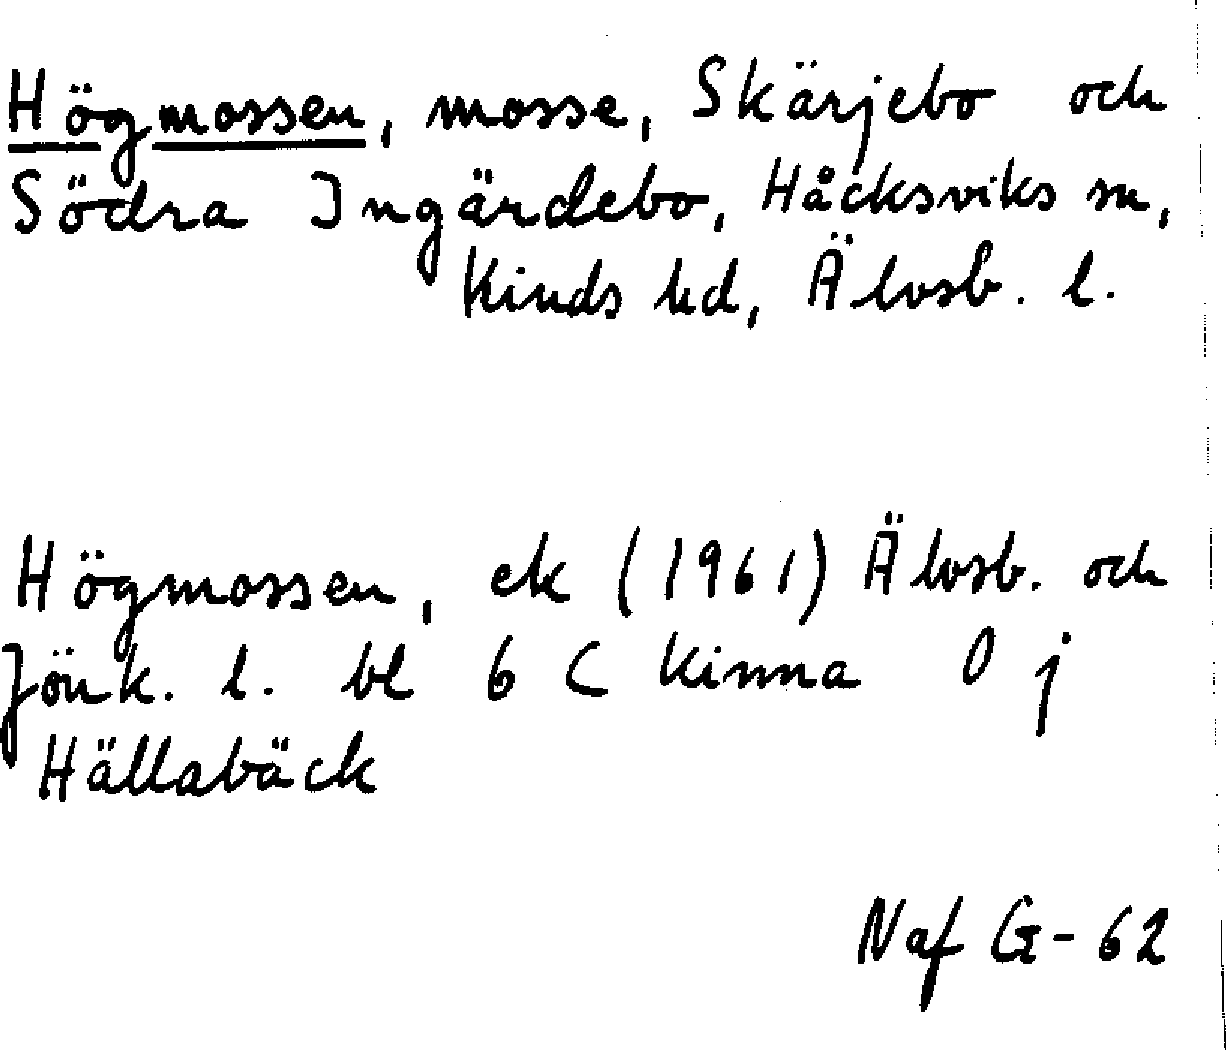 Högmossen, mosse, Skärjebo och
Södra Ingärdebo, Håcksviks sn,
Kinds hd, Älvsb. l.
Högmossen, ek (1961) Älvsb. och
Jönk. l. bl 6 C Kinna 0 j
Hällabäck
Naf G-62